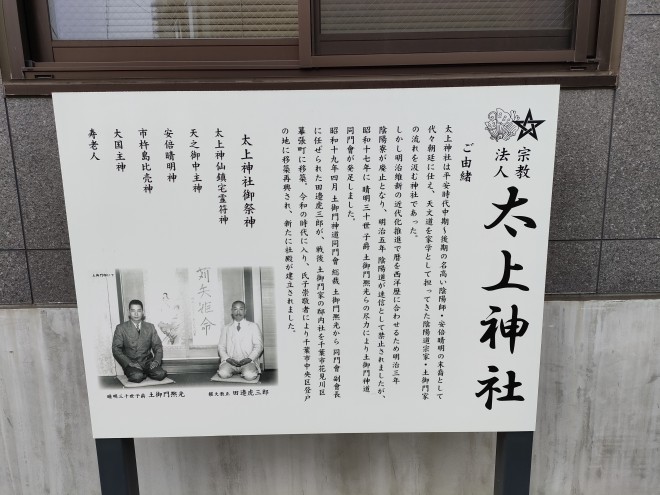 宗教
法人
太上神社
ご由緒
太上神社は平安時代中期～後期の名高い陰陽師・安倍晴明の末裔として
代々朝廷に仕え、天文道を家学として担ってきた陰陽道宗家・土御門家
の流れを汲む神社であった。
しかし明治維新の近代化推進で暦を西洋暦に合わせるため明治三年
陰陽寮が廃止となり、明治五年 陰陽道が迷信として禁止されましたが、
昭和十七年に 晴明三十世 子爵 土御門熈光らの尽力により土御門神道
同門會が発足しました。
昭和十九年四月 土御門神道同門會 総裁 土御門熈光から 同門會 副會長
に任ぜられた田邉虎三郎が、戦後 土御門家の邸内社を千葉市花見川区
幕張町に移築。令和の時代に入り、氏子崇敬者により千葉市中央区登戸
の地に移築再興され、新たに社殿が建立されました。
太上神社御祭神
太上神仙鎮宅霊符神
天之御中主神
安倍晴明神
市杵島比売神
大国主神
寿老人
晴明三十世子爵 土御門熈光
田邉虎三郎